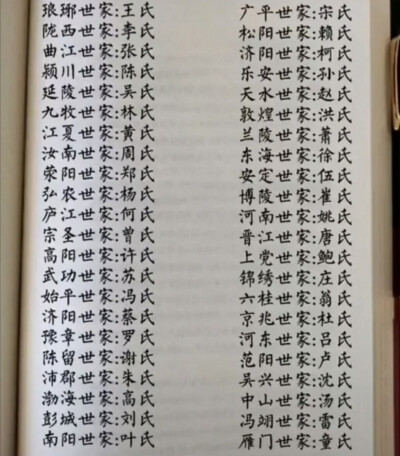 琅琊世家:王氏
陇西世家:李氏
曲江世家:张氏
颍川世家:陈氏
延陵世家:吴氏
九牧世家:林氏
江夏世家:黄氏
汝南世家:周氏
荥阳世家:郑氏
弘农世家:杨氏
庐江世家:何氏
宗圣世家:曾氏
高阳世家:许氏
武功世家:苏氏
始平世家:冯氏
济阳世家:蔡氏
豫章世家:罗氏
陈留世家:谢氏
沛郡世家:朱氏
渤海世家:高氏
彭城世家:刘氏
南阳世家:叶氏
广平世家:宋氏
松阳世家:赖氏
济阳世家:柯氏
乐安世家:孙氏
天水世家:赵氏
敦煌世家:洪氏
兰陵世家:萧氏
东海世家:徐氏
安定世家:伍氏
博陵世家:崔氏
河南世家:姚氏
晋江世家:唐氏
上党世家:鲍氏
锦绣世家:庄氏
六桂世家:翁氏
京兆世家:杜氏
河东世家:吕氏
范阳世家:卢氏
吴兴世家:沈氏
中山世家:汤氏
冯翊世家:雷氏
雁门世家:童氏